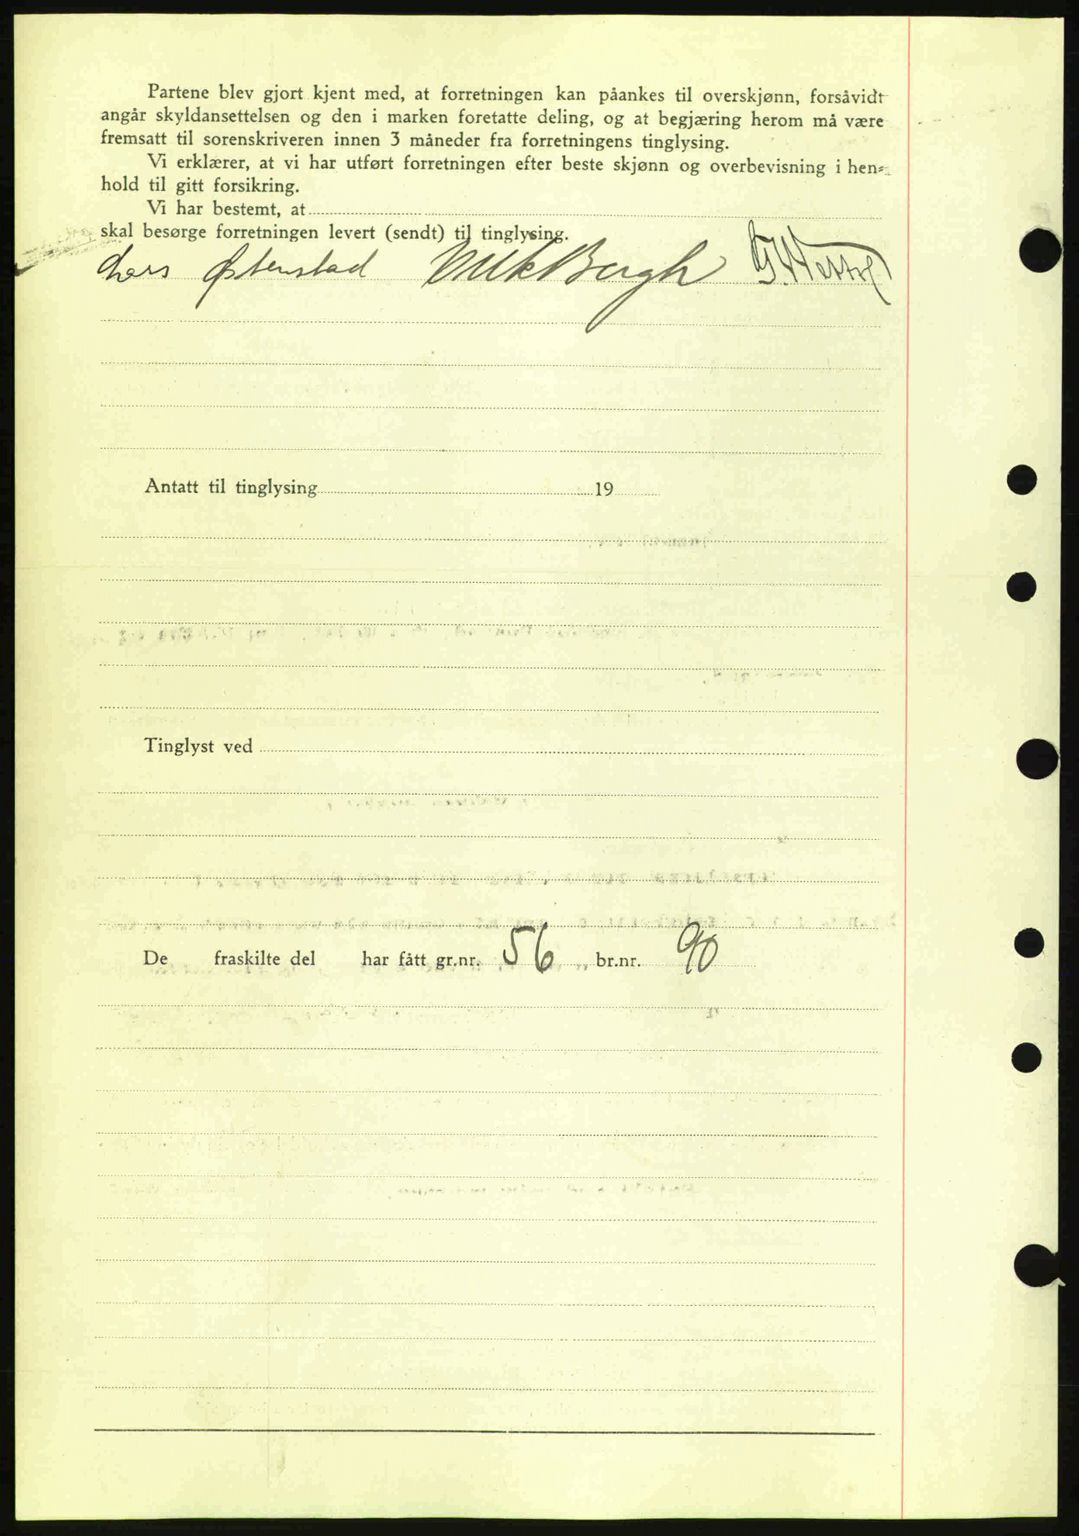 Partene blev gjort kjent med, at forretningen kan påankes til overskjønn, forsåvidt
angår skyldansettelsen og den i marken foretatte deling, og at begjæring herom må være
fremsatt til sorenskriveren innen 3 måneder fra forretningens tinglysing.
Vi erklærer, at vi har utført forretningen efter beste skjønn og overbevisning i hen-
hold til gitt forsikring.
Vi har bestemt, at
skal besørge forretningen levert (sendt) til tinglysing.
Lars Østenstad
Antatt til tinglysing 19
Tinglyst ved
De fraskilte del har fått gr.nr. 56 „ br.nr. 90